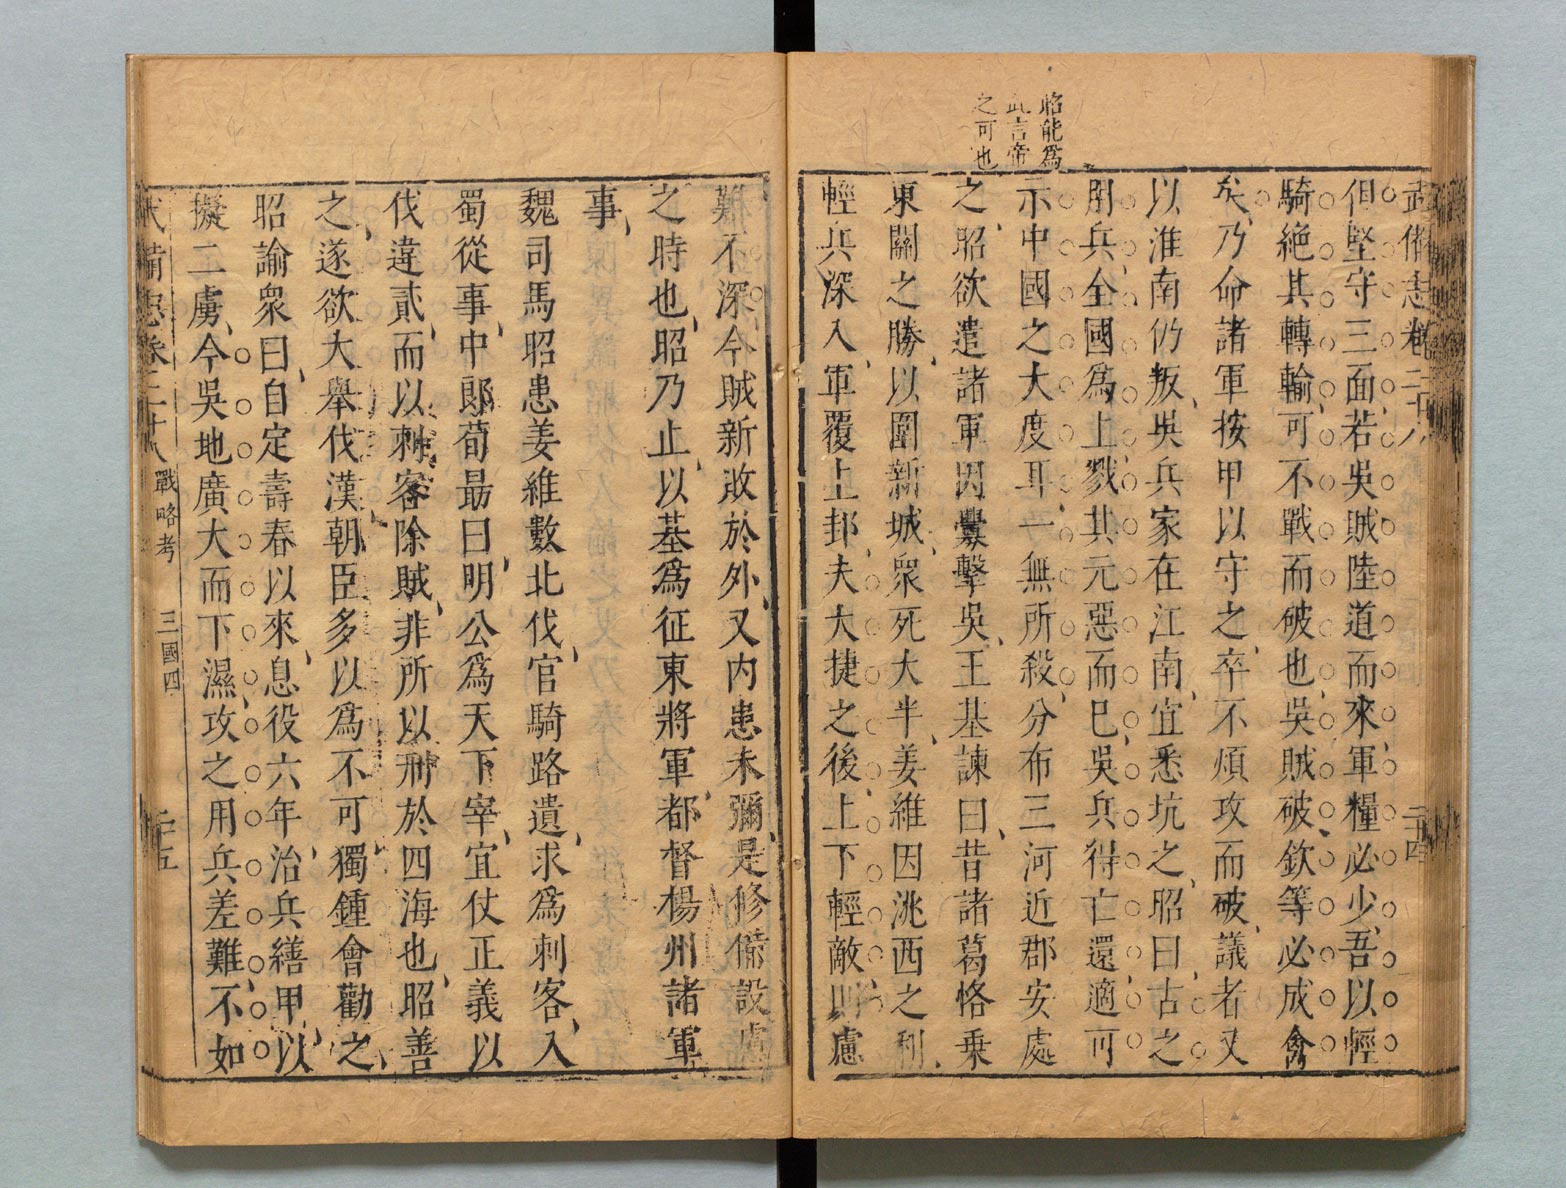 昭能爲
此言帝
之可也
武備志卷二十八
二十四
但堅守三面若吳賊陸道而來軍糧必少吾以輕
騎絶其轉輸可不戰而破也吳賊破欽等必成禽
矣乃命諸軍按甲以守之卒不煩攻而破議者又
以淮南仍叛吳兵家在江南宜悉坑之昭曰古之
用兵全國爲上戮其元惡而已吳兵得亡還適可
示中國之大度耳一無所殺分布三河近郡安處
之昭欲遣諸軍因釁擊吳王基諫曰昔諸葛恪乗
東關之勝以圍新城衆死大半姜維因洮西之利
輕兵深入軍覆上邽夫大捷之後上下輕敵則慮
難不深今賊新敗於外又内患未彌是修備設慮
之時也昭乃止以基爲征東將軍都督楊州諸軍
事
魏司馬昭患姜維數北伐官騎路遺求爲刺客入
蜀從事中郞荀勗曰明公爲天下宰宜仗正義以
伐違貳而以刺客除賊非所以刑於四海也昭善
之遂欲大舉伐漢朝臣多以爲不可獨鍾會勸之
昭諭衆曰自定壽春以來息役六年治兵繕甲以
擬二虜今吳地廣大而下濕攻之用兵差難不如
武備志卷二十八 戰略考 三國四 二十五